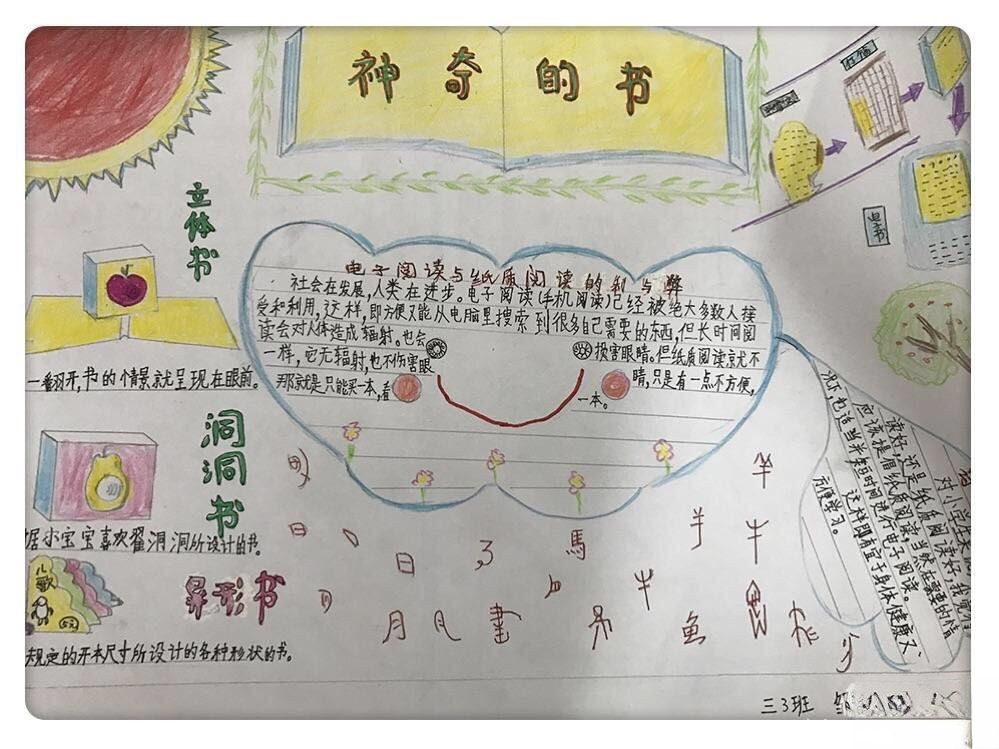 神奇的书
竹简
电子书
立体书
一番羽开,书的情景就呈现在眼前。
洞洞书
居小宝宝喜欢翟洞洞所设计的书。
儿歌
异形书
规定的开本尺寸所设计的各种形状的书。
电子阅读与纸质阅读的利与弊
社会在发展,人类在进步。电子阅读(手机阅读)已经被绝大多数人接
受和利用,这样,即方便又能从电脑里搜索到很多自己需要的东西,但长时间阅
读会对人体造成辐射。也会损害眼睛。但纸质阅读就不
一样,它无辐射,也不伤害眼睛,只是有一点不方便,
那就是只能买一本,看一本。
对小学生来
读好,还是纸质阅读好,我觉得
应该提倡纸质阅读,当然在需要的情
况下,也适当并季时间进行电子阅读。
这样即有宜于身体健康又
方便学习。
羊
日 日 马 馬 羊 牛
月 月 書 鱼
三3班 邹